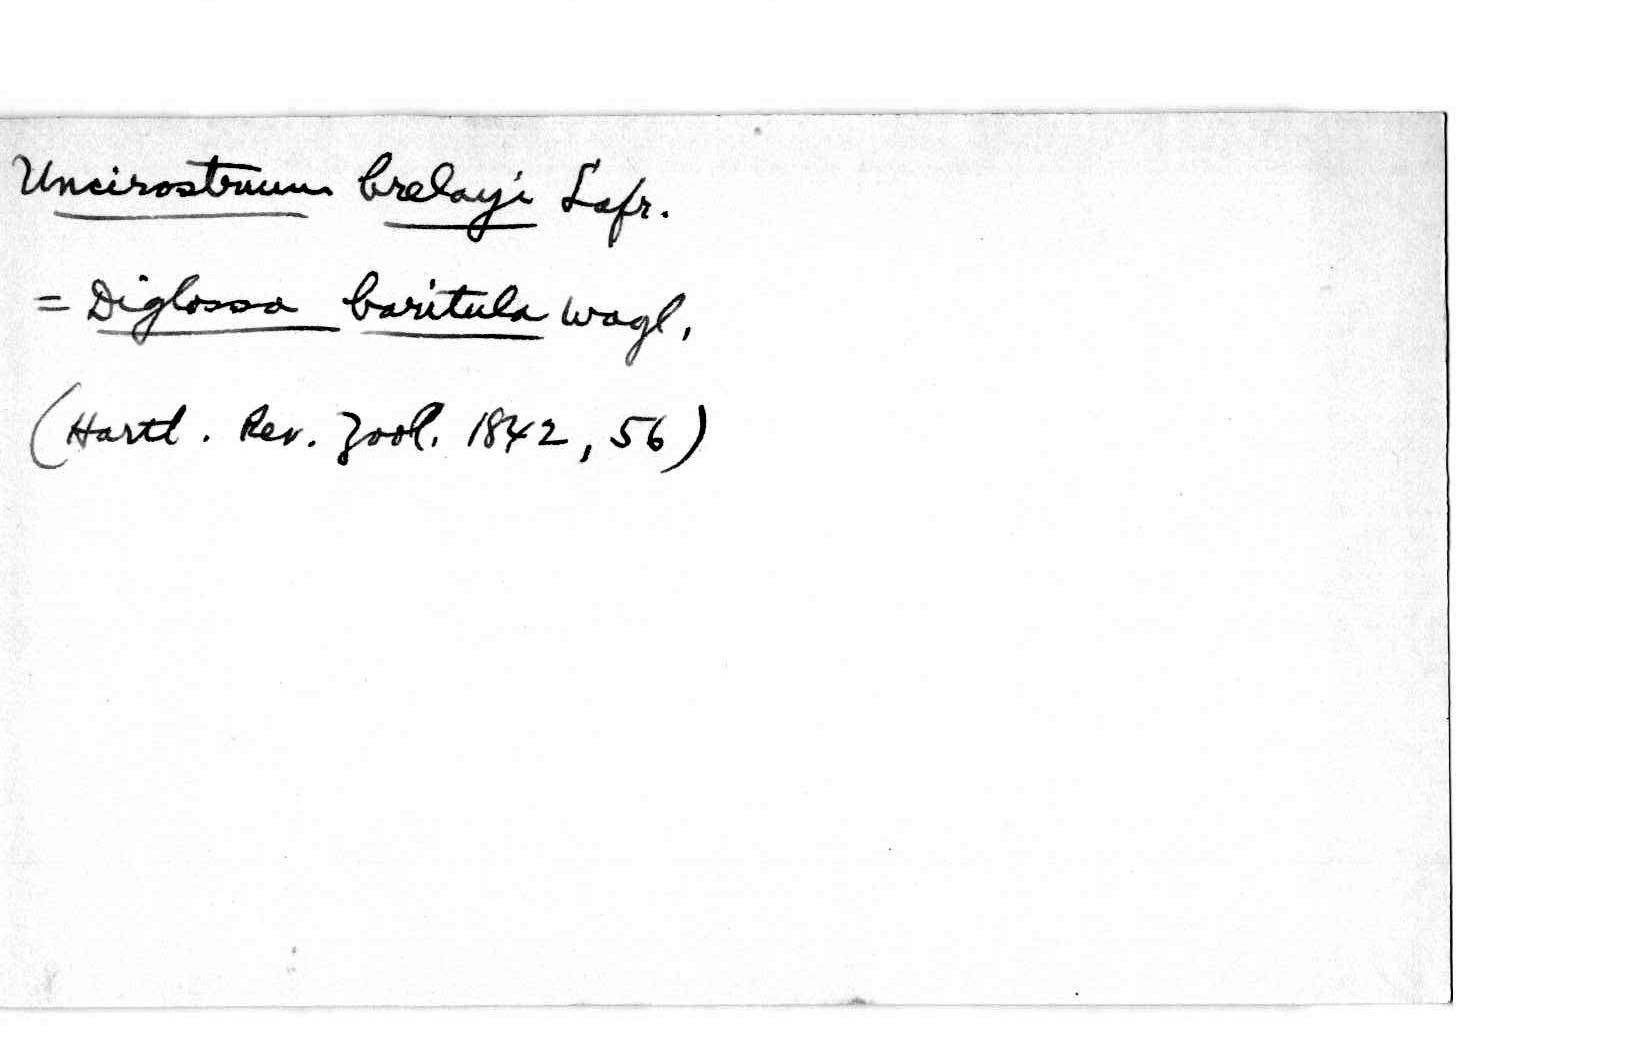 Uncirostrum brelayi Lafr.
= Diglossa baritula Wagl.
(Hartl. Rev. Zool. 1842, 56)